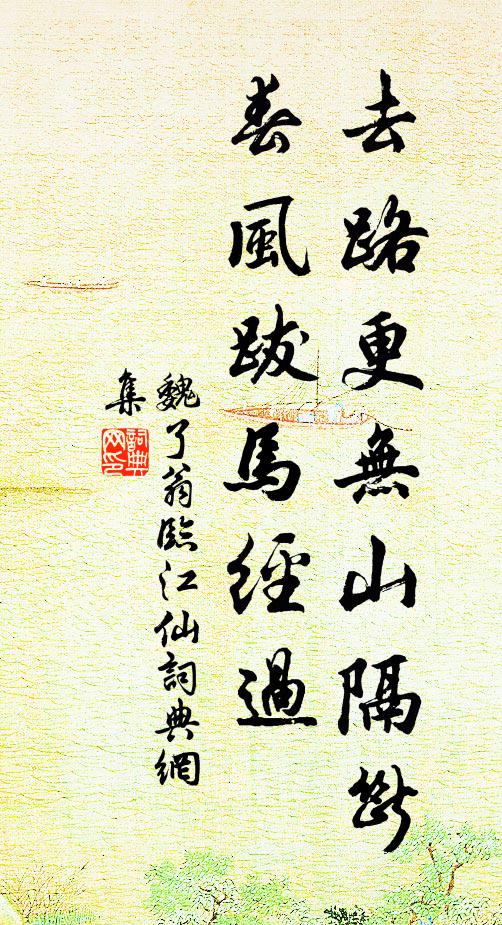 去路更無山隔斷
春風跋馬經過
魏了翁臨江仙詞典網
集
詞典網印